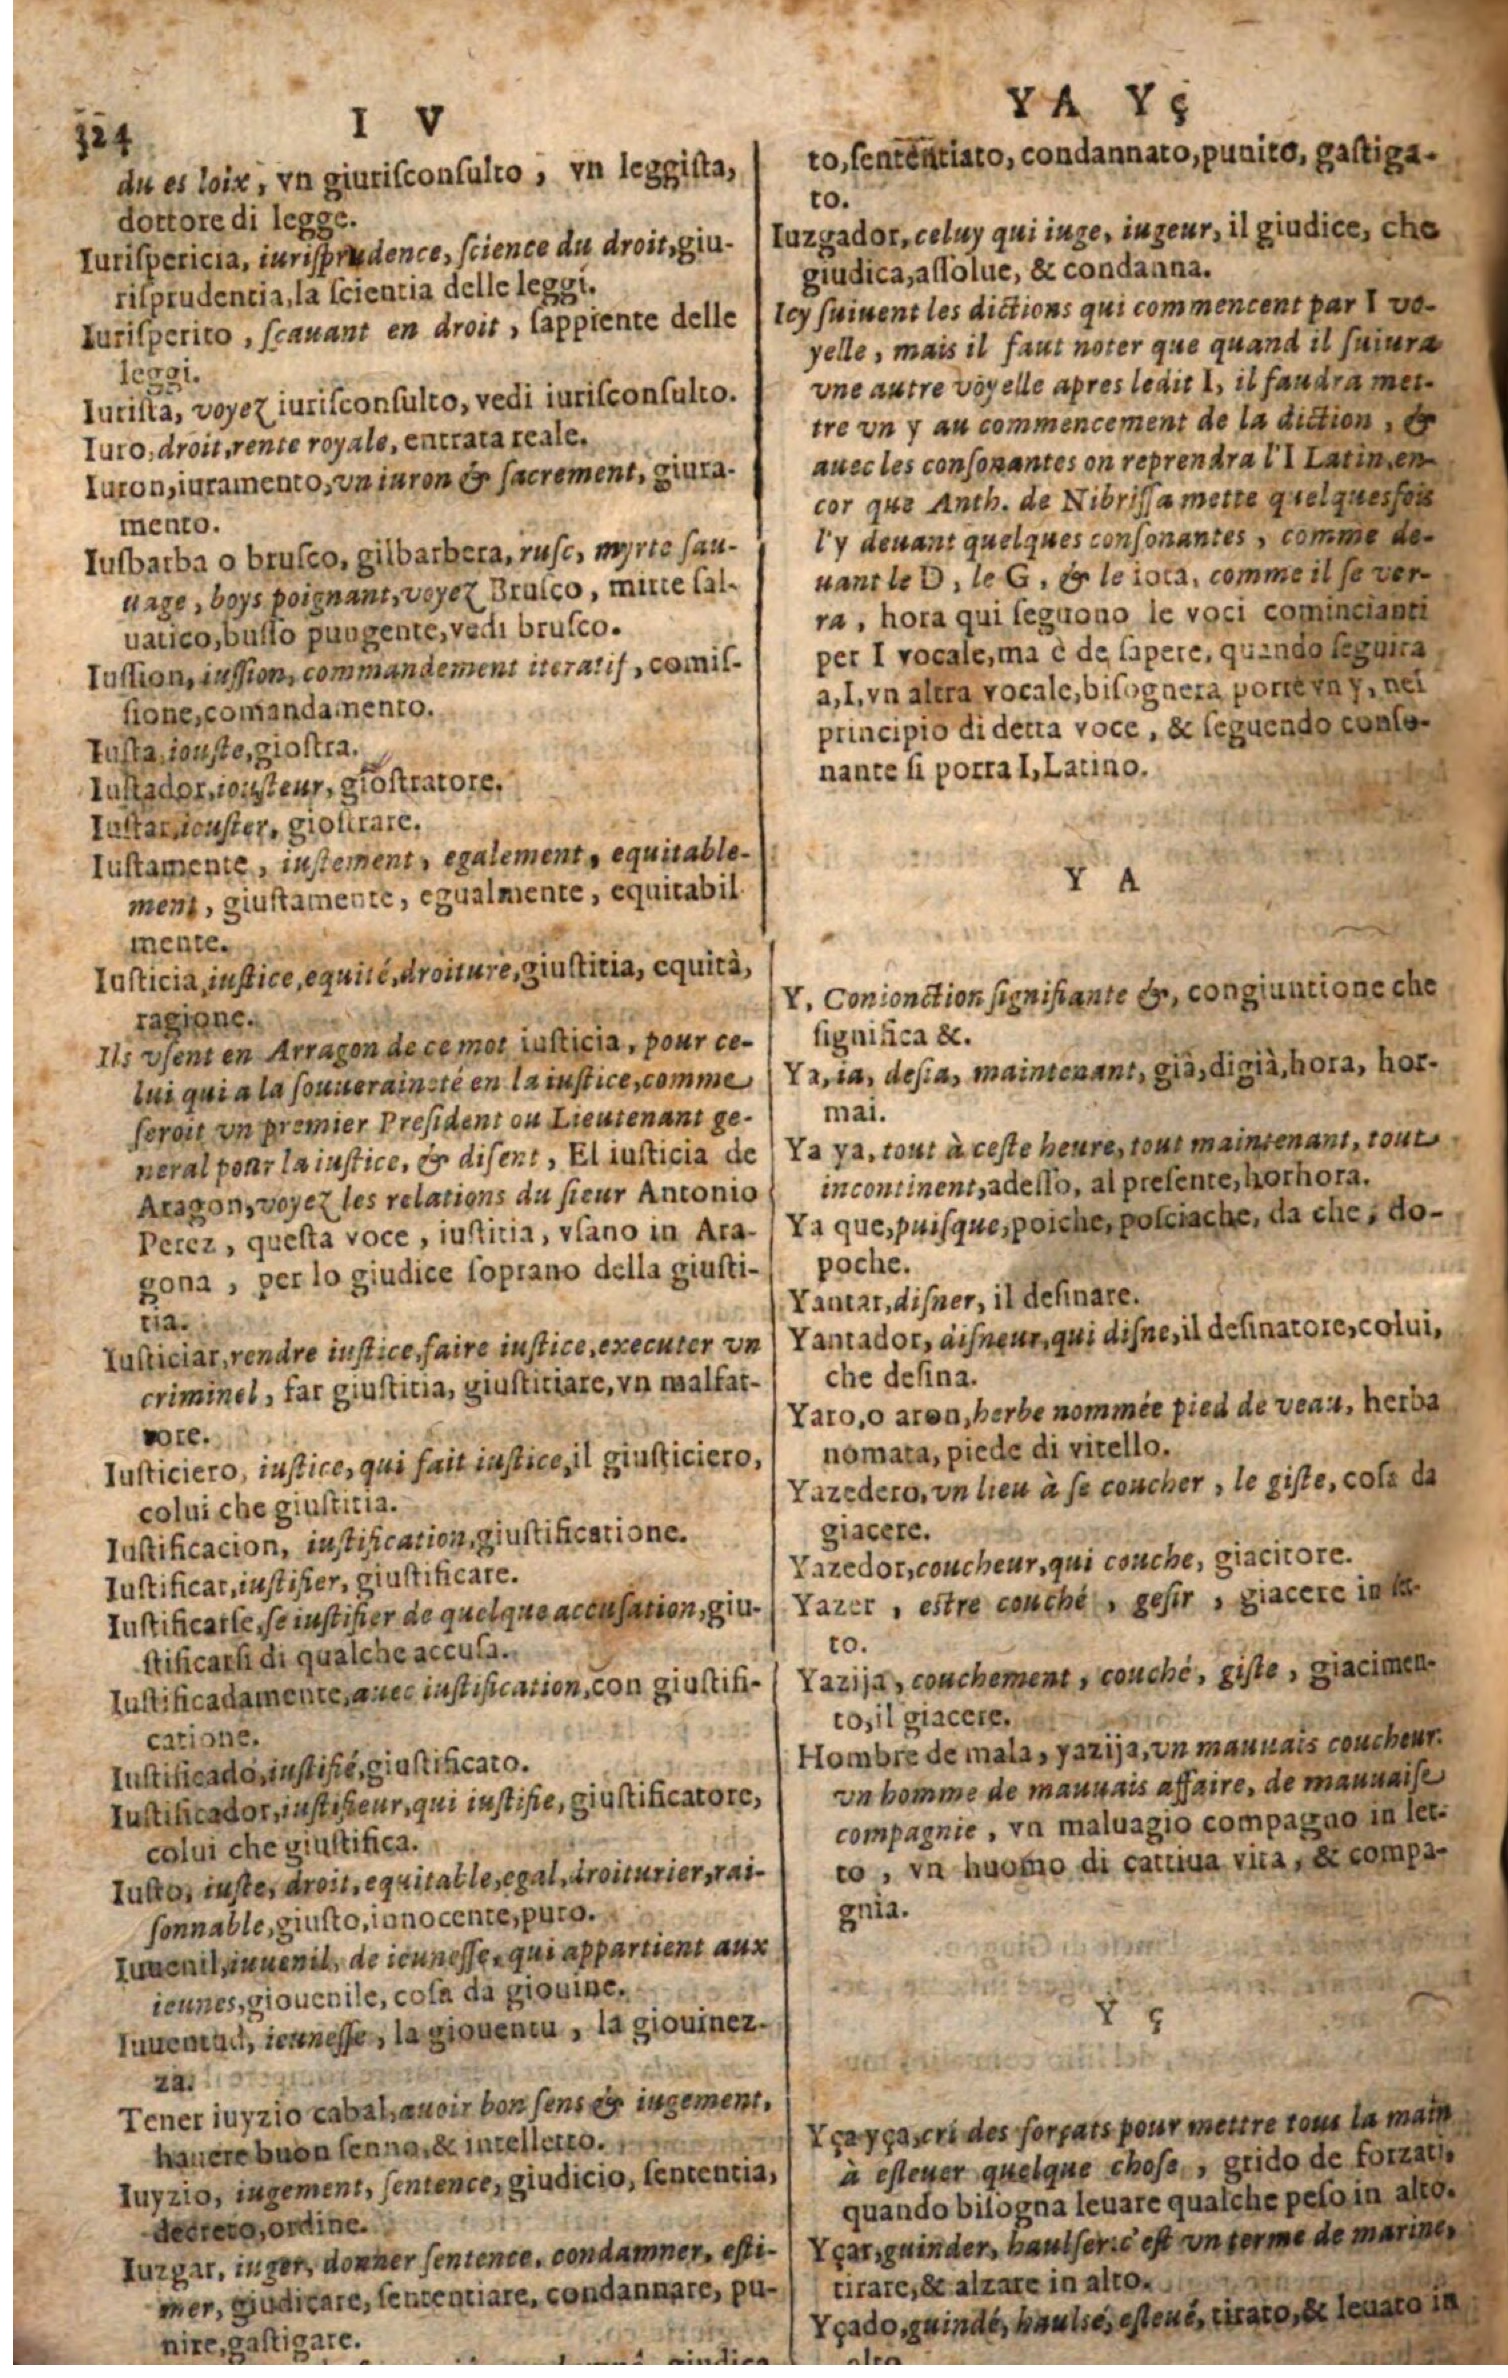 324
I V
du es loix, vn giurisconsulto, vn leggista,
dottore di legge.
Iurispericia, iurisprudence, science du droit, giu-
risprudentia, la scientia delle leggi.
Iurisperito, sçauant en droit, sappiente delle
leggi.
Iurista, voyez iurisconsulto, vedi iurisconsulto.
Iuro, droit, rente royale, entrata reale.
Iuron, iuramento, vn iuron & sacrement, giura-
mento.
Iusbarba o brusco, gilbarbera, rusc, myrte sau-
uage, boys poignant, voyez Brusco, mirte sal-
uatico, busso pungente, vedi brusco.
Iussion, iussion, commandement iteratif, comis-
sione, comandamento.
Iusta, iouste, giostra.
Iustador, iousteur, giostratore.
Iustar, iouster, giostrare.
Iustamente, iustement, egalement, equitable-
ment, giustamente, egualmente, equitabil
mente.
Iusticia, iustice, equité, droiture, giustitia, equità,
ragione.
Ils vsent en Arragon de ce mot iusticia, pour ce-
lui qui a la souueraineté en la iustice, comme
seroit vn premier President ou Lieutenant ge-
neral pour la iustice, & disent, El iusticia de
Aragon, voyez les relations du sieur Antonio
Perez, questa voce, iustitia, vsano in Ara-
gona, per lo giudice soprano della giusti-
tia.
Iusticiar, rendre iustice, faire iustice, executer vn
criminel, far giustitia, giustitiare, vn malfat-
tore.
Iusticiero, iustice, qui fait iustice, il giusticiero,
colui che giustitia.
Iustificacion, iustification, giustificatione.
Iustificar, iustifier, giustificare.
Iustificarse, se iustifier de quelque accusation, giu-
stificarsi di qualche accusa.
Iustificadamente, auec iustification, con giustifi-
catione.
Iustificado, iustifié, giustificato.
Iustificador, iustifieur, qui iustifie, giustificatore,
colui che giustifica.
Iusto, iuste, droit, equitable, egal, droiturier, rai-
sonnable, giusto, innocente, puro.
Iuuenil, iuuenil, de ieunesse, qui appartient aux
ieunes, giouenile, cosa da giouine.
Iuuentud, ieunesse, la giouentu, la giouinez-
za.
Tener iuyzio cabal, auoir bon sens & iugement,
hauere buon senno, & intelletto.
Iuyzio, iugement, sentence, giudicio, sententia,
decreto, ordine.
Iuzgar, iuger, donner sentence, condamner, esti-
mer, giudicare, sententiare, condannare, pu-
nire, gastigare.
giudica
YA Yç
to, sententiato, condannato, punito, gastiga-
to.
Iuzgador, celuy qui iuge, iugeur, il giudice, che
giudica, assolue, & condanna.
Icy suiuent les dictions qui commencent par I vo-
yelle, mais il faut noter que quand il suiura
vne autre voyelle apres ledit I, il faudra met-
tre vn y au commencement de la diction, &
auec les consonantes on reprendra l'I Latin, en-
cor que Anth. de Nibrissa mette quelquesfois
l'y deuant quelques consonantes, comme de-
uant le D, le G, & le iota, comme il se ver-
ra, hora qui seguono le voci comincianti
per I vocale, ma è de sapere, quando seguira
a, I, vn altra vocale, bisognera porre vn y, nel
principio di detta voce, & seguendo conso-
nante si porra I, Latino.
Y A
Y, Conionction signifiante &, congiuntione che
significa &.
Ya, ia, desia, maintenant, già, digià, hora, hor-
mai.
Ya ya, tout à ceste heure, tout maintenant, tout
incontinent, adesso, al presente, horhora.
Ya que, puisque, poiche, posciache, da che, do-
poche.
Yantar, disner, il desinare.
Yantador, disneur, qui disne, il desinatore, colui,
che desina.
Yaro, o aron, herbe nommée pied de veau, herba
nomata, piede di vitello.
Yazedero, vn lieu à se coucher, le giste, cosa da
giacere.
Yazedor, coucheur, qui couche, giacitore.
Yazer, estre couché, gesir, giacere in let-
to.
Yazija, couchement, couché, giste, giacimen-
to, il giacere.
Hombre de mala, yazija, vn mauuais coucheur.
vn homme de mauuais affaire, de mauuaise
compagnie, vn maluagio compagno in let-
to, vn huomo di cattiua vita, & compa-
gnia.
Y ç
Yça yça, cri des forçats pour mettre tous la main
à esleuer quelque chose, grido de forzati,
quando bisogna leuare qualche peso in alto.
Yçar, guinder, haulser: c'est vn terme de marine,
tirare, & alzare in alto.
Yçado, guindé, haulsé, esleué, tirato, & leuato in
alto